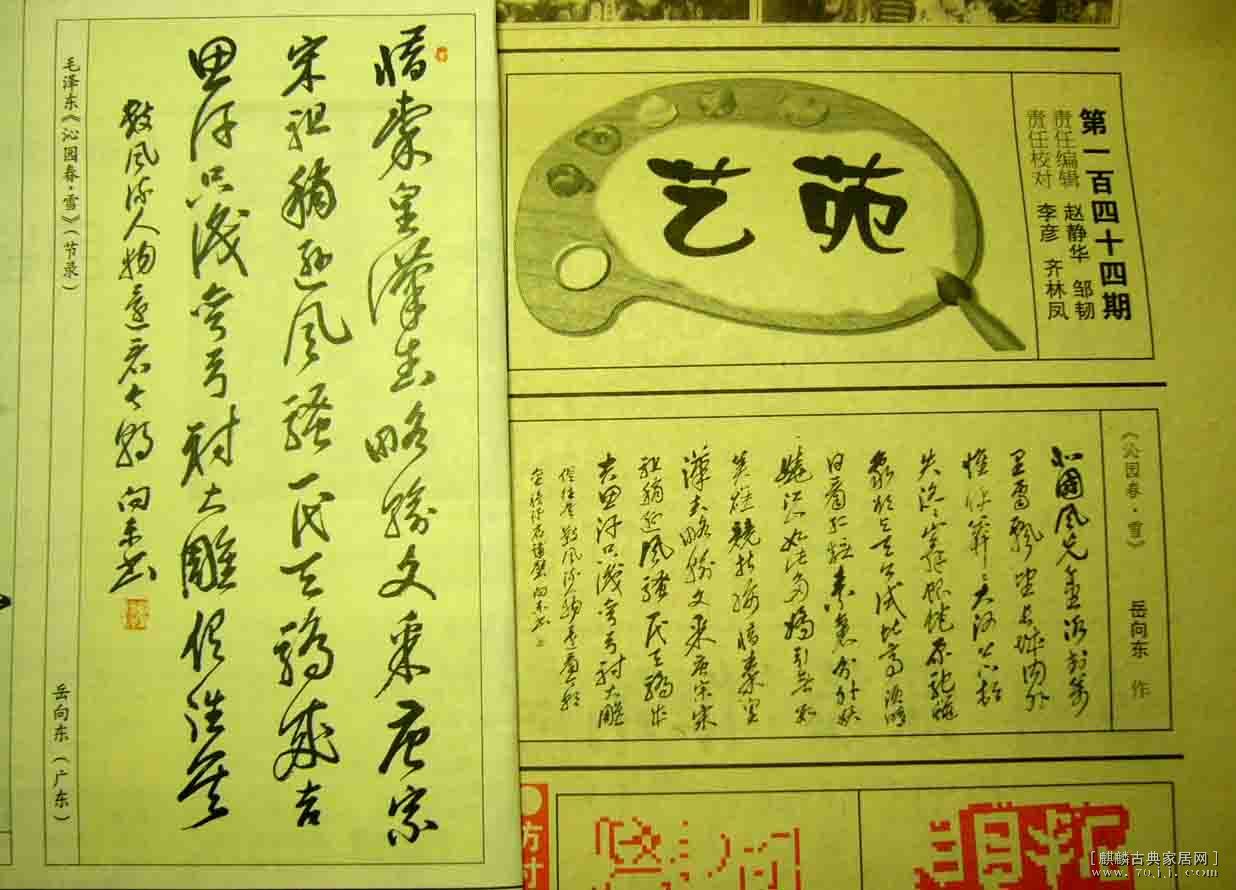 毛泽东《沁园春·雪》（节录）
岳向东（广东）
惜秦皇漢武略输文采唐宗
宋祖稍逊风骚一代天骄成吉
思汗只識弯弓射大雕俱往矣
数风流人物還看今朝 向东书
艺苑
第一百四十四期
责任编辑 赵静华 邹韧
责任校对 李彦 齐林凤
《沁园春·雪》 岳向东 作
北國风光千里冰封万
里雪飘望长城内外
惟馀莽莽大河上下顿
失滔滔山舞银蛇原驰蜡
象欲与天公试比高须晴
日看红装素裹分外妖
娆江山如此多娇引无数
英雄競折腰惜秦皇
漢武略输文采唐宗宋
祖稍逊风骚一代天骄成
吉思汗只識弯弓射大雕
俱往矣数风流人物還看今朝
方寸
[麒麟古典家居网]
www.70jj.com